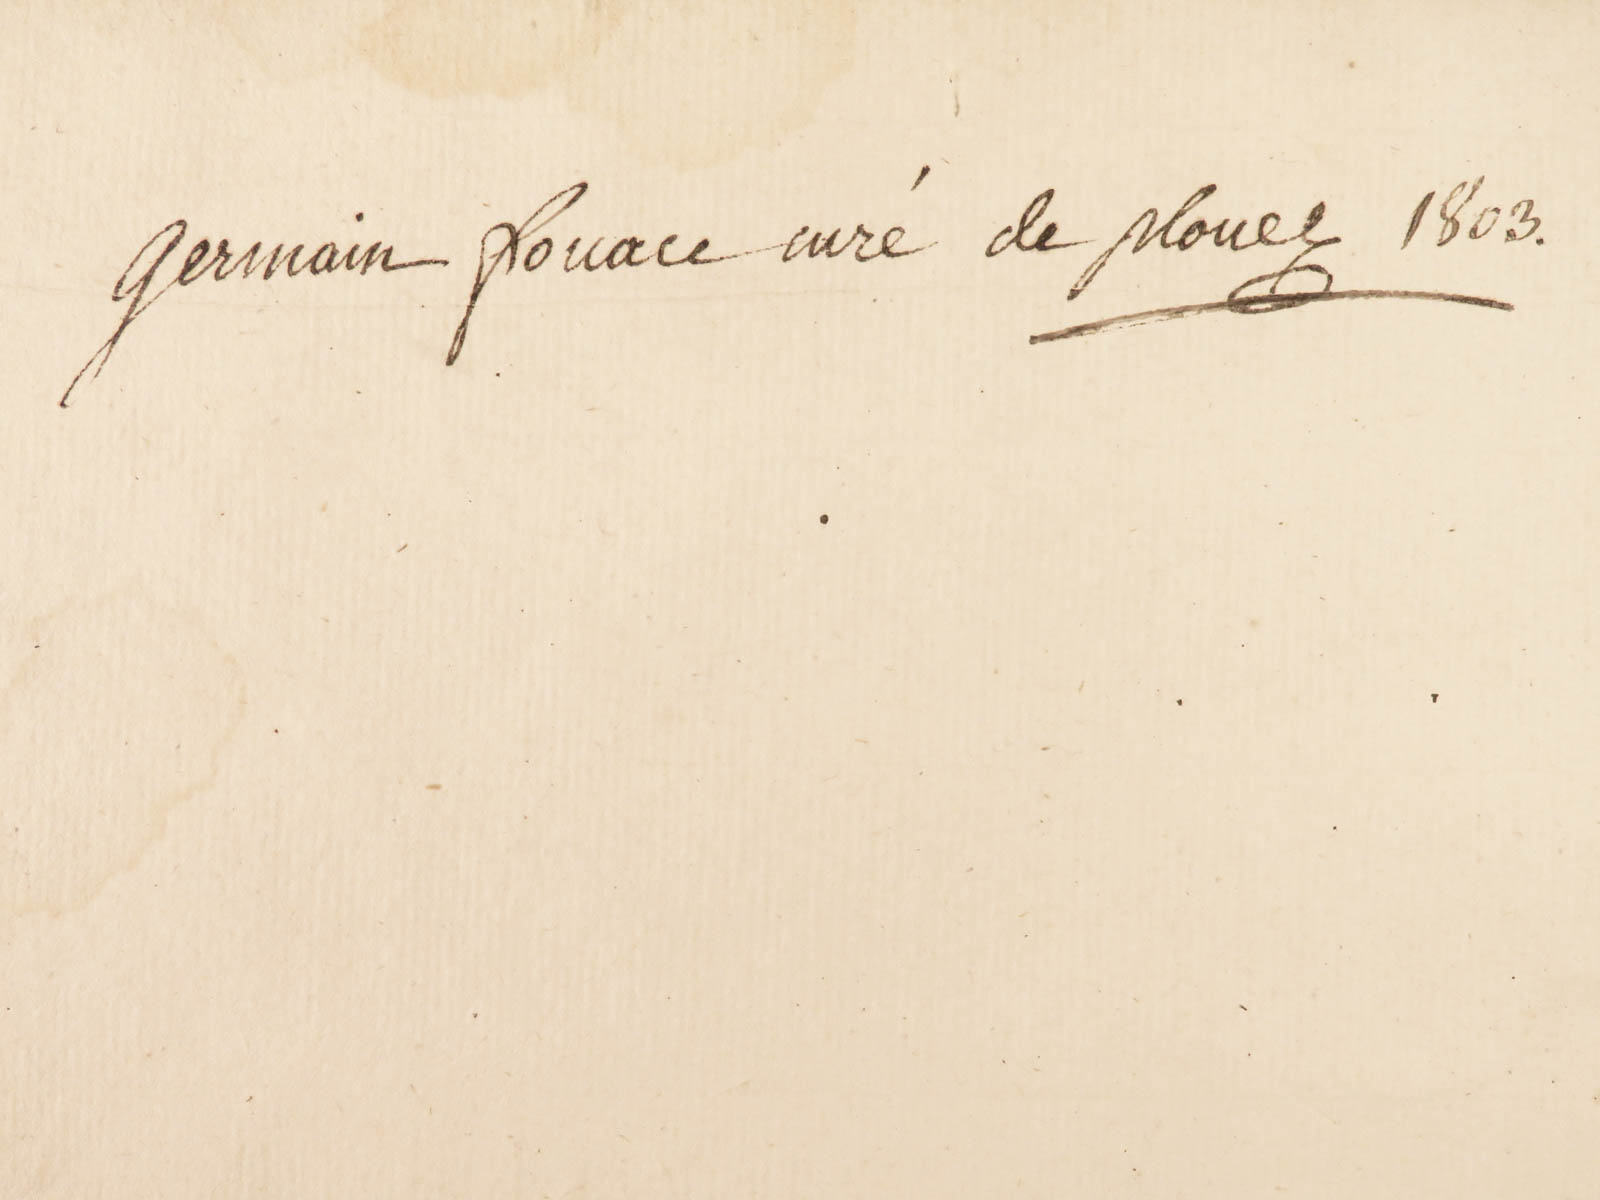 germain fouace curé de plouez 1803.